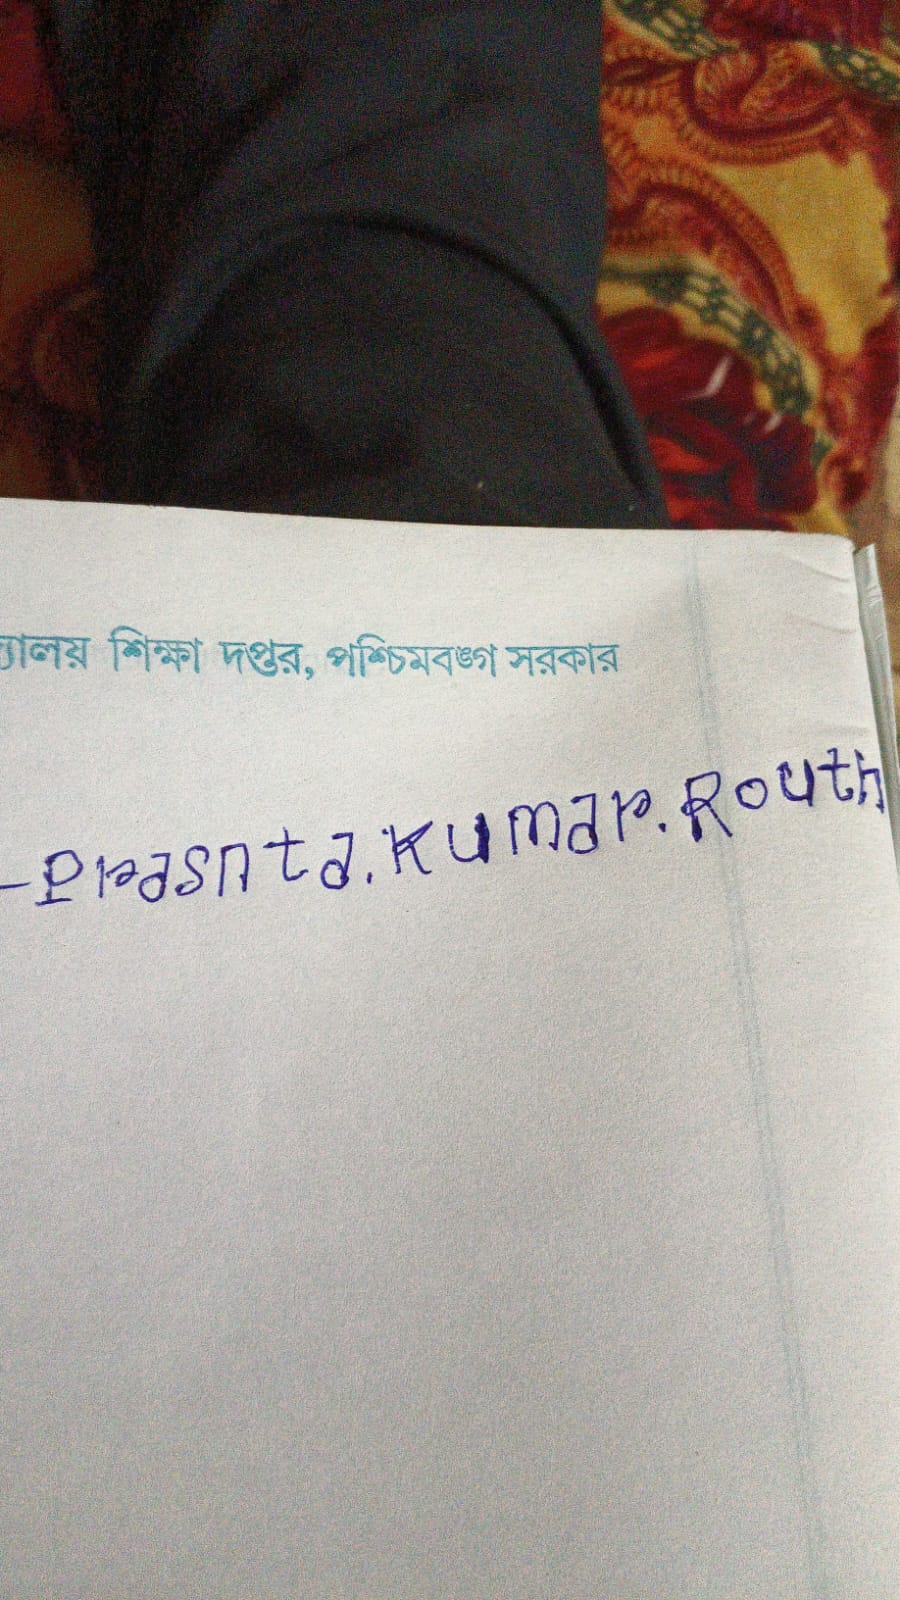 ্যালয় শিক্ষা দপ্তর, পশ্চিমবঙ্গ সরকার
-Prasnta.Kumar.Routh